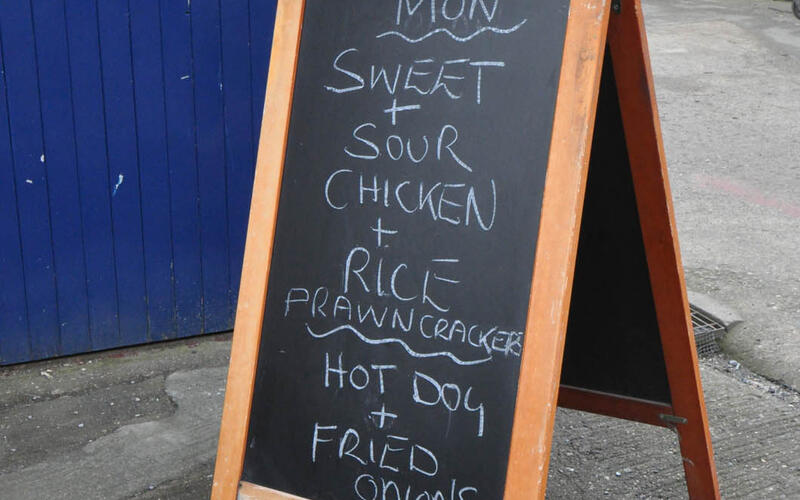 MON
SWEET
+
SOUR
CHICKEN
+
RICE
PRAWN CRACKERS
HOT DOG
+
FRIED
ONIONS